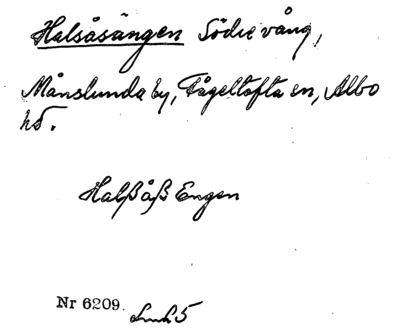 Halsåsängen Södre vång,
Månslunda by, Fågeltofta sn, Albo
hd.
Halßåß Engen
Nr 6209.